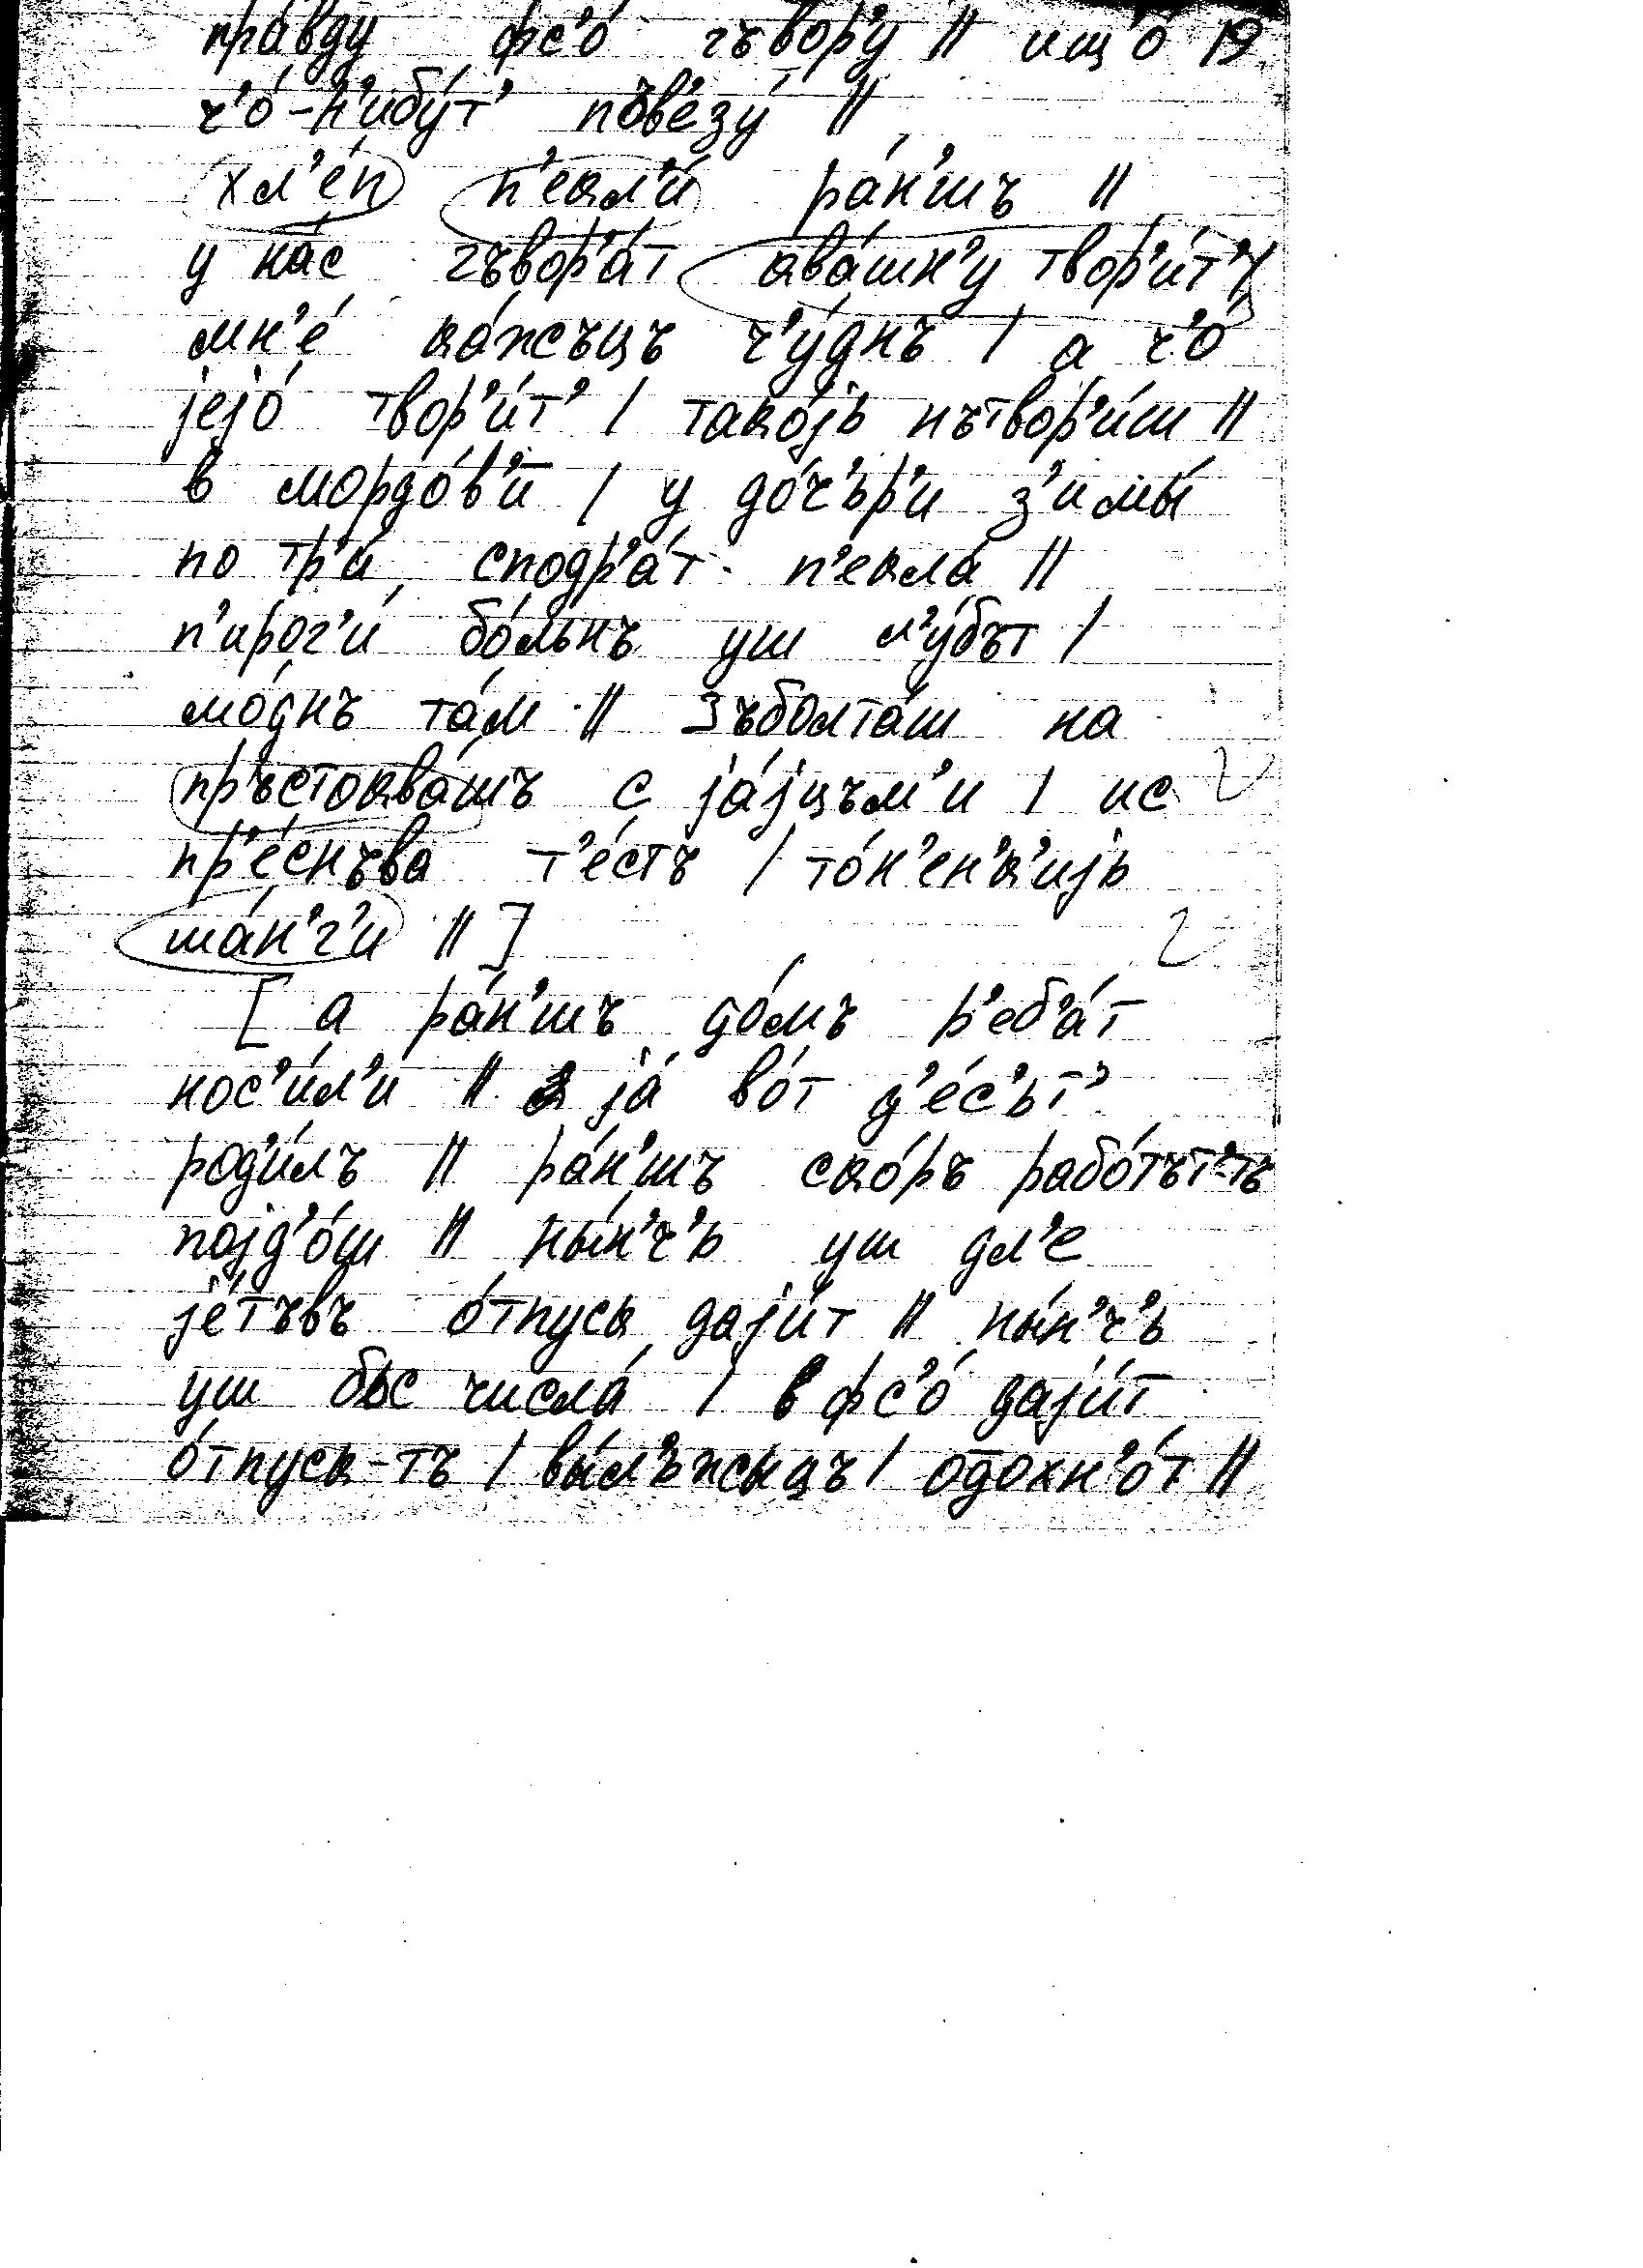 пра́вду фс'о́ гъвор'у́ || ищ'о́ 19
ч'о́-н'ибу́т' пъв'езу́ ||
хл'е́п п'екл'и́ ра́н'шъ ||
у на́с гъвор'а́т квашн'у́ твор'и́т' /
мн'е́ ка́жъцъ ч'у́днъ / а ч'о́
jejо́ твор'и́т' / тако́jь нътвор'и́ш ||
в мордо́в'и / у до́ч'ьр'и з'имы́
по тр'и́ сподр'а́т п'екла́ ||
п'ирог'и́ бо́льнъ уш л'у́бът /
мо́днъ та́м || зъболта́ш на
пръстоква́шъ с jа́jцъм'и / ис
пр'е́снъва т'е́стъ / то́н'ен'к'иjь
ша́н'г'и || ]
[ а ра́н'шъ до́мъ р'еб'а́т
нос'и́л'и || а jа́ во́т д'е́с'ьт'
род'и́лъ || ра́н'шъ ско́ръ рабо́тът'-тъ
поjд'о́ш || ны́н'ч'ь уш дл'е
jе́тъвъ о́тпуск даjу́т || ны́н'ч'ь
уш бьс числа́ / в фс'о́ даjу́т
о́тпуск-тъ / вы́л'ьжыцъ / одохн'о́т ||